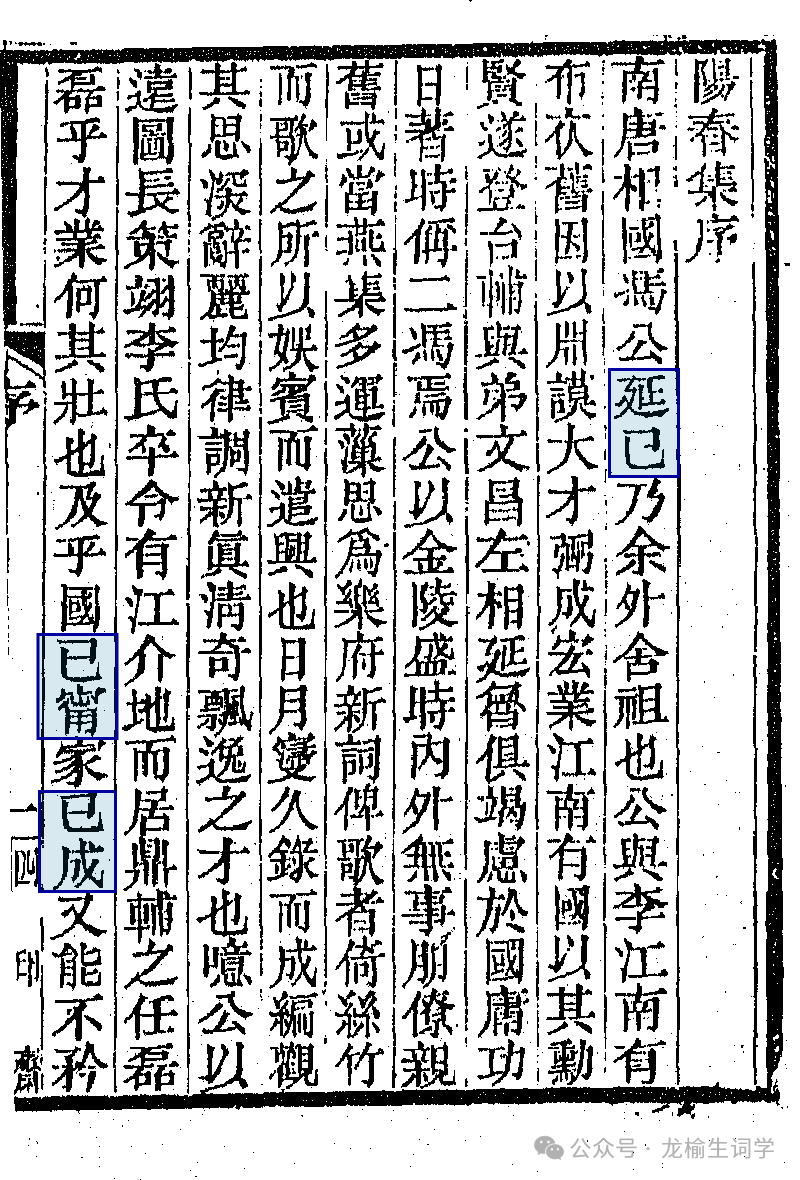 陽春集序
南唐相國馮公延巳乃余外舍祖也公與李江南有
布衣舊因以淵謨大才弼成宏業江南有國以其勳
賢遂登台輔與弟文昌左相延魯俱竭慮於國庸功
日著時偁二馮焉公以金陵盛時內外無事朋僚親
舊或當燕集多運藻思爲樂府新詞俾歌者倚絲竹
而歌之所以娛賓而遣興也日月寖久錄而成編觀
其思深辭麗均律調新眞淸奇飄逸之才也噫公以
遠圖長策翊李氏卒令有江介地而居鼎輔之任磊
磊乎才業何其壯也及乎國已甯家已成又能不矜
序
一
四
印
齋
公众号 · 龙榆生词学